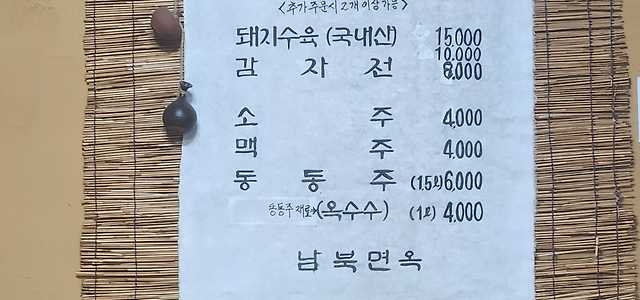 <추가 주문시 2개 이상 가능>
돼지수육 (국내산) 15,000
10,000
감 자 전 8,000
소 주 4,000
맥 주 4,000
동 동 주 (1.5ℓ) 6,000
동동주 재료→(옥수수) (1ℓ) 4,000
남 북 면 옥